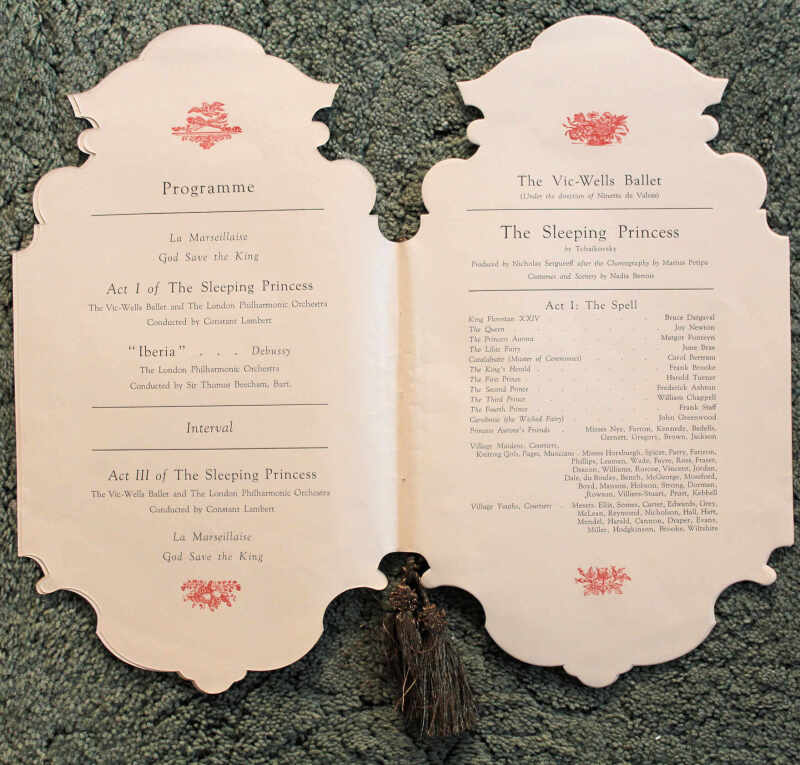 Programme
La Marseillaise
God Save the King
Act I of The Sleeping Princess
The Vic-Wells Ballet and The London Philharmonic Orchestra
Conducted by Constant Lambert
"Iberia" . . . Debussy
The London Philharmonic Orchestra
Conducted by Sir Thomas Beecham, Bart.
Interval
Act III of The Sleeping Princess
The Vic-Wells Ballet and The London Philharmonic Orchestra
Conducted by Constant Lambert
La Marseillaise
God Save the King
The Vic-Wells Ballet
(Under the direction of Ninette de Valois)
The Sleeping Princess
by Tchaikovsky
Produced by Nicholas Sergueeff after the Choreography by Marius Petipa
Costumes and Scenery by Nadia Benois
Act I: The Spell
King Florestan XXIV . . . . Bruce Dargaval
The Queen . . . . Joy Newton
The Princess Aurora . . . . Margot Fonteyn
The Lilac Fairy . . . . June Brae
Catalabutte (Master of Ceremonies) . . . . Carol Bertram
The King's Herald . . . . Frank Brooke
The First Prince . . . . Harold Turner
The Second Prince . . . . Frederick Ashton
The Third Prince . . . . William Chappell
The Fourth Prince . . . . Frank Staff
Carabosse (the Wicked Fairy) . . . . John Greenwood
Princess Aurora's Friends . Misses Nye, Farron, Kennedy, Bedells,
Garnett, Gregory, Brown, Jackson
Village Maidens, Courtiers,
Knitting Girls, Pages, Musicians . Misses Horsburgh, Spicer, Parry, Farieon,
Phillips, Leaman, Wade, Fayre, Ross, Fraser,
Deacon, Williams, Roscoe, Vincent, Jordan,
Dale, du Boulay, Bench, McGeorge, Moreford,
Boyd, Massons, Hobson, Strong, Dorman,
Rowson, Villiers-Stuart, Peart, Kebbell
Village Youths, Courtiers . Messrs. Ellis, Somes, Carter, Edwards, Grey,
McLean, Reymond, Nicholson, Hall, Hart,
Mendel, Harald, Cannon, Draper, Evans,
Miller, Hodgkinson, Brooke, Wiltshire